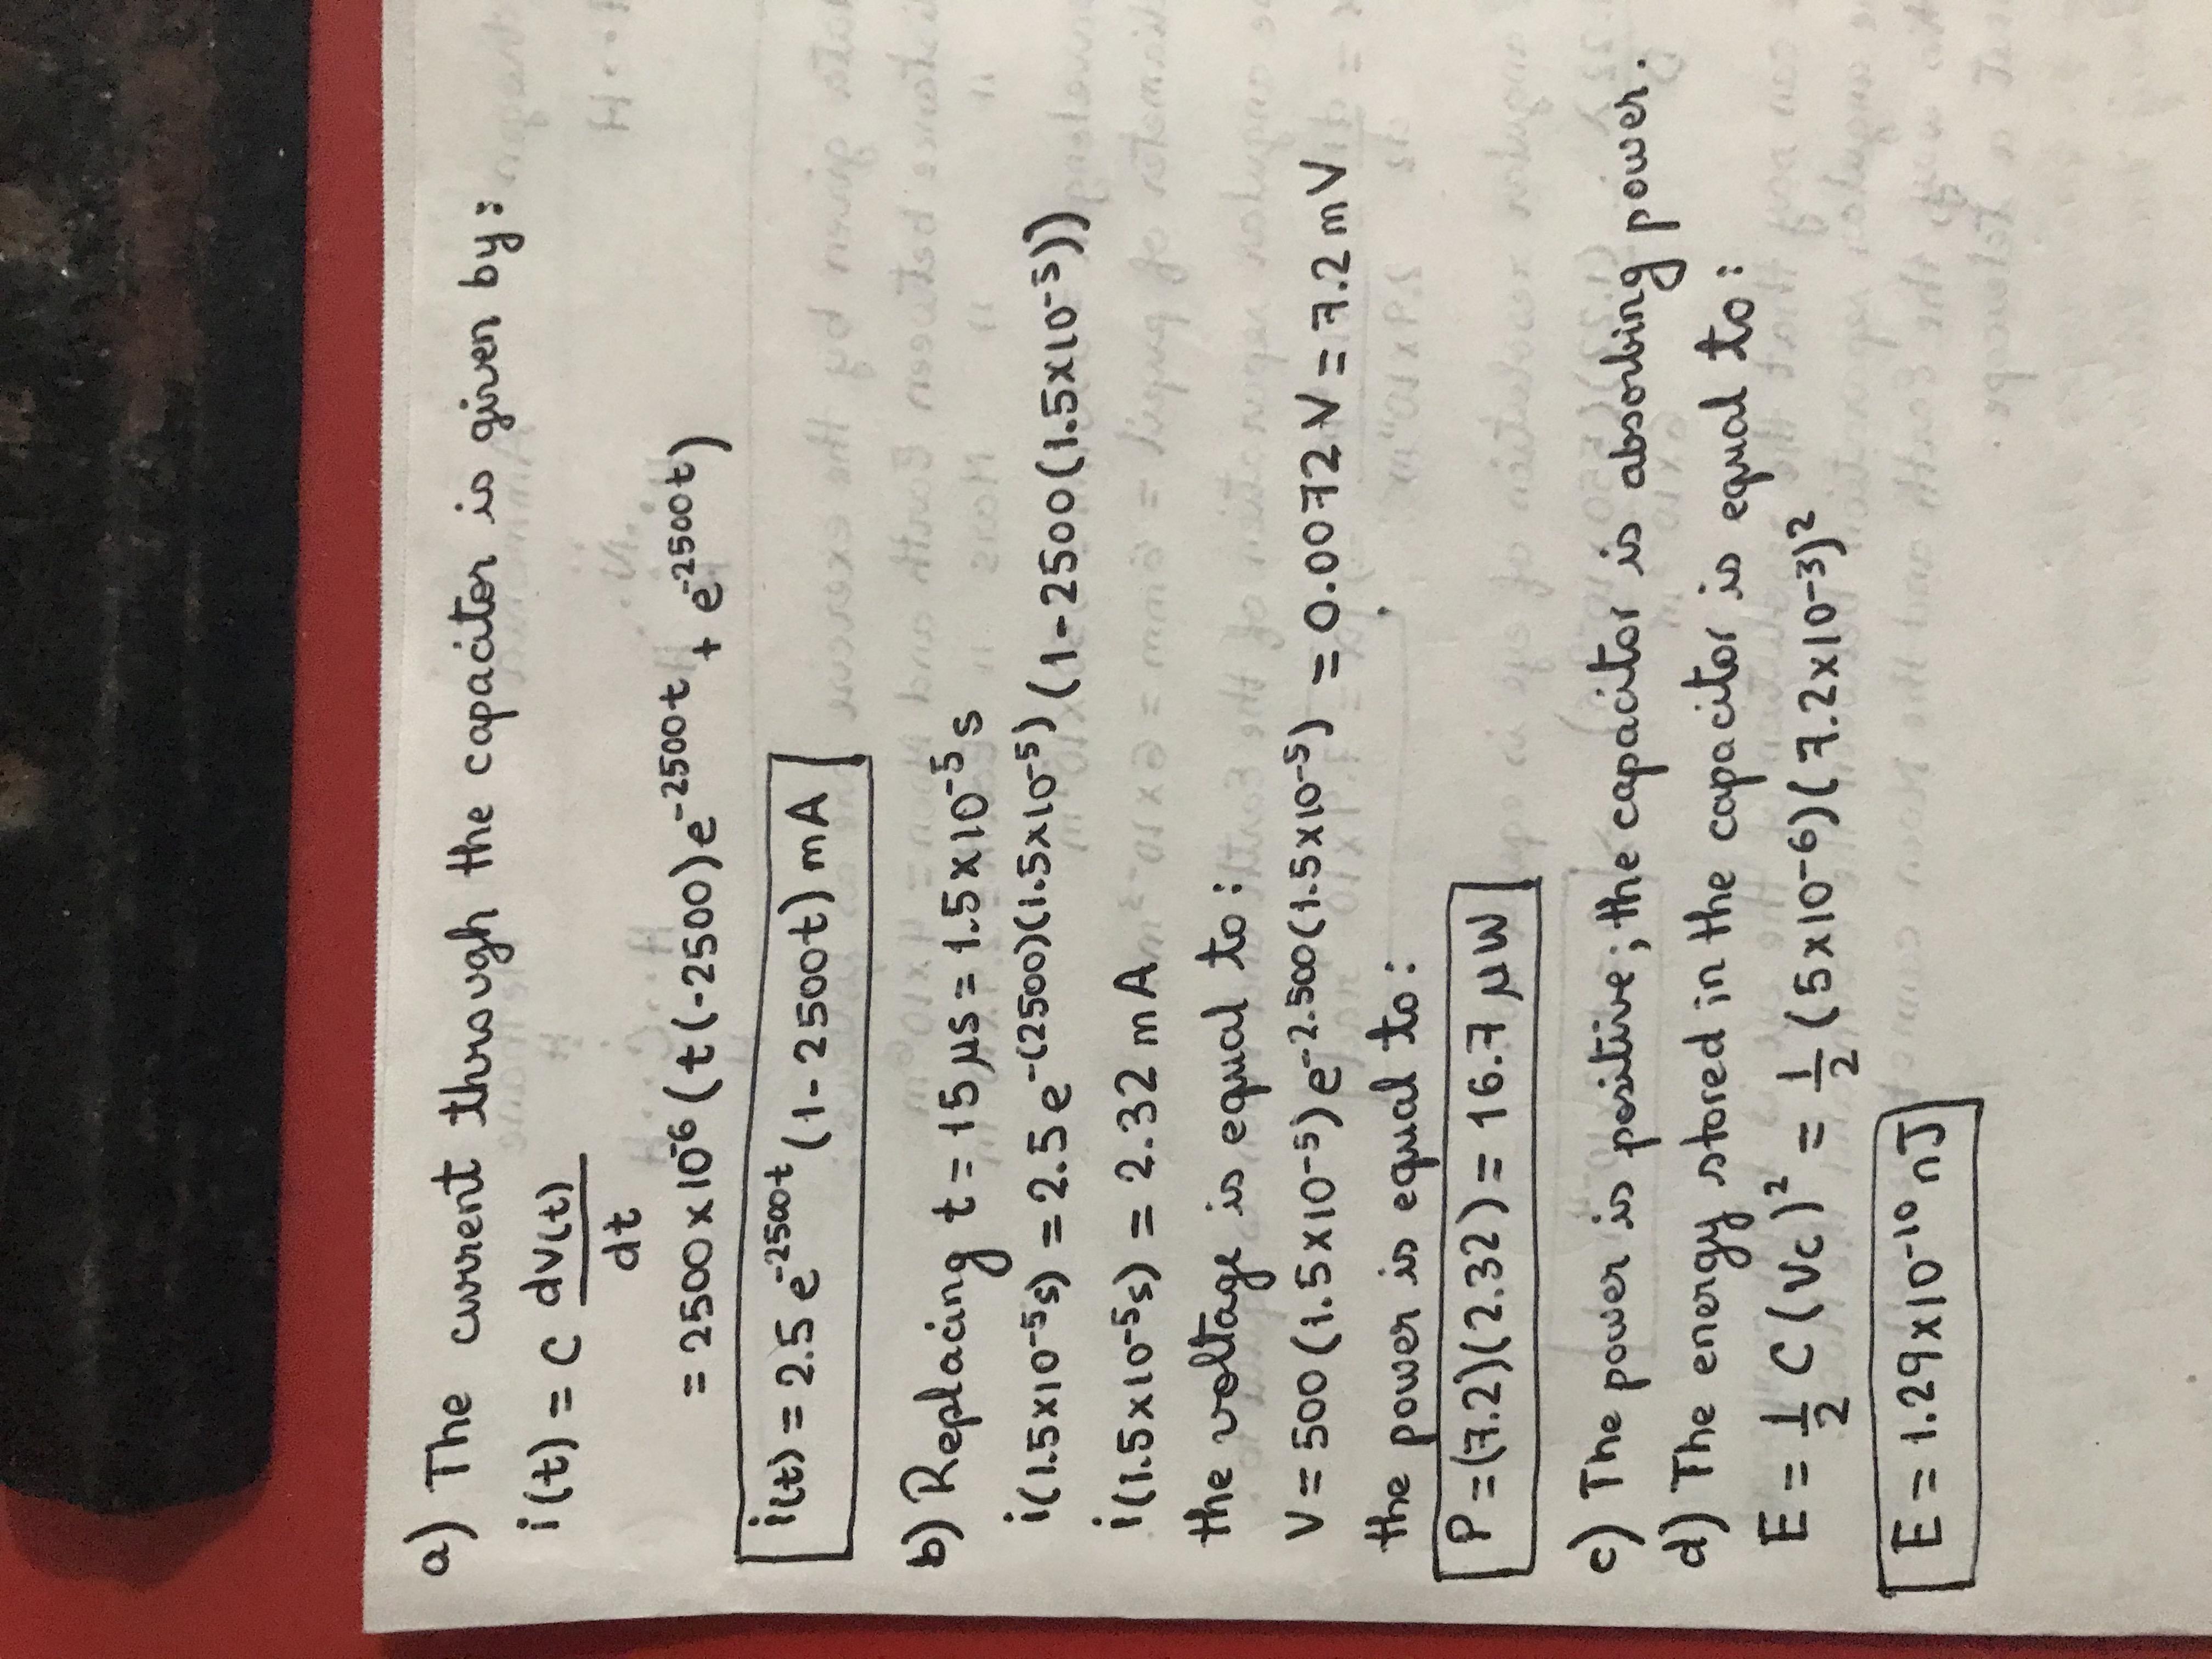 a) The current through the capacitor is given by:
i(t) = C dV(t)/dt
= 2500 x 10⁻⁶ (t(-2500)e⁻²⁵⁰⁰ᵗ + e⁻²⁵⁰⁰ᵗ)
i(t) = 2.5 e⁻²⁵⁰⁰ᵗ (1-2500t) mA
b) Replacing t = 15 μs = 1.5x10⁻⁵ s
i(1.5x10⁻⁵s) = 2.5 e^-(2500)(1.5x10⁻⁵) (1-2500(1.5x10⁻⁵))
i(1.5x10⁻⁵s) = 2.32 mA
the voltage is equal to:
V = 500 (1.5x10⁻⁵) e^-2.500(1.5x10⁻⁵) = 0.0072 V = 7.2 mV
the power is equal to:
P = (7.2)(2.32) = 16.7 μW
c) The power is positive; the capacitor is absorbing power.
d) The energy stored in the capacitor is equal to:
E = 1/2 C (Vc)² = 1/2 (5x10⁻⁶)(7.2x10⁻³)²
E = 1.29x10⁻¹⁰ nJ